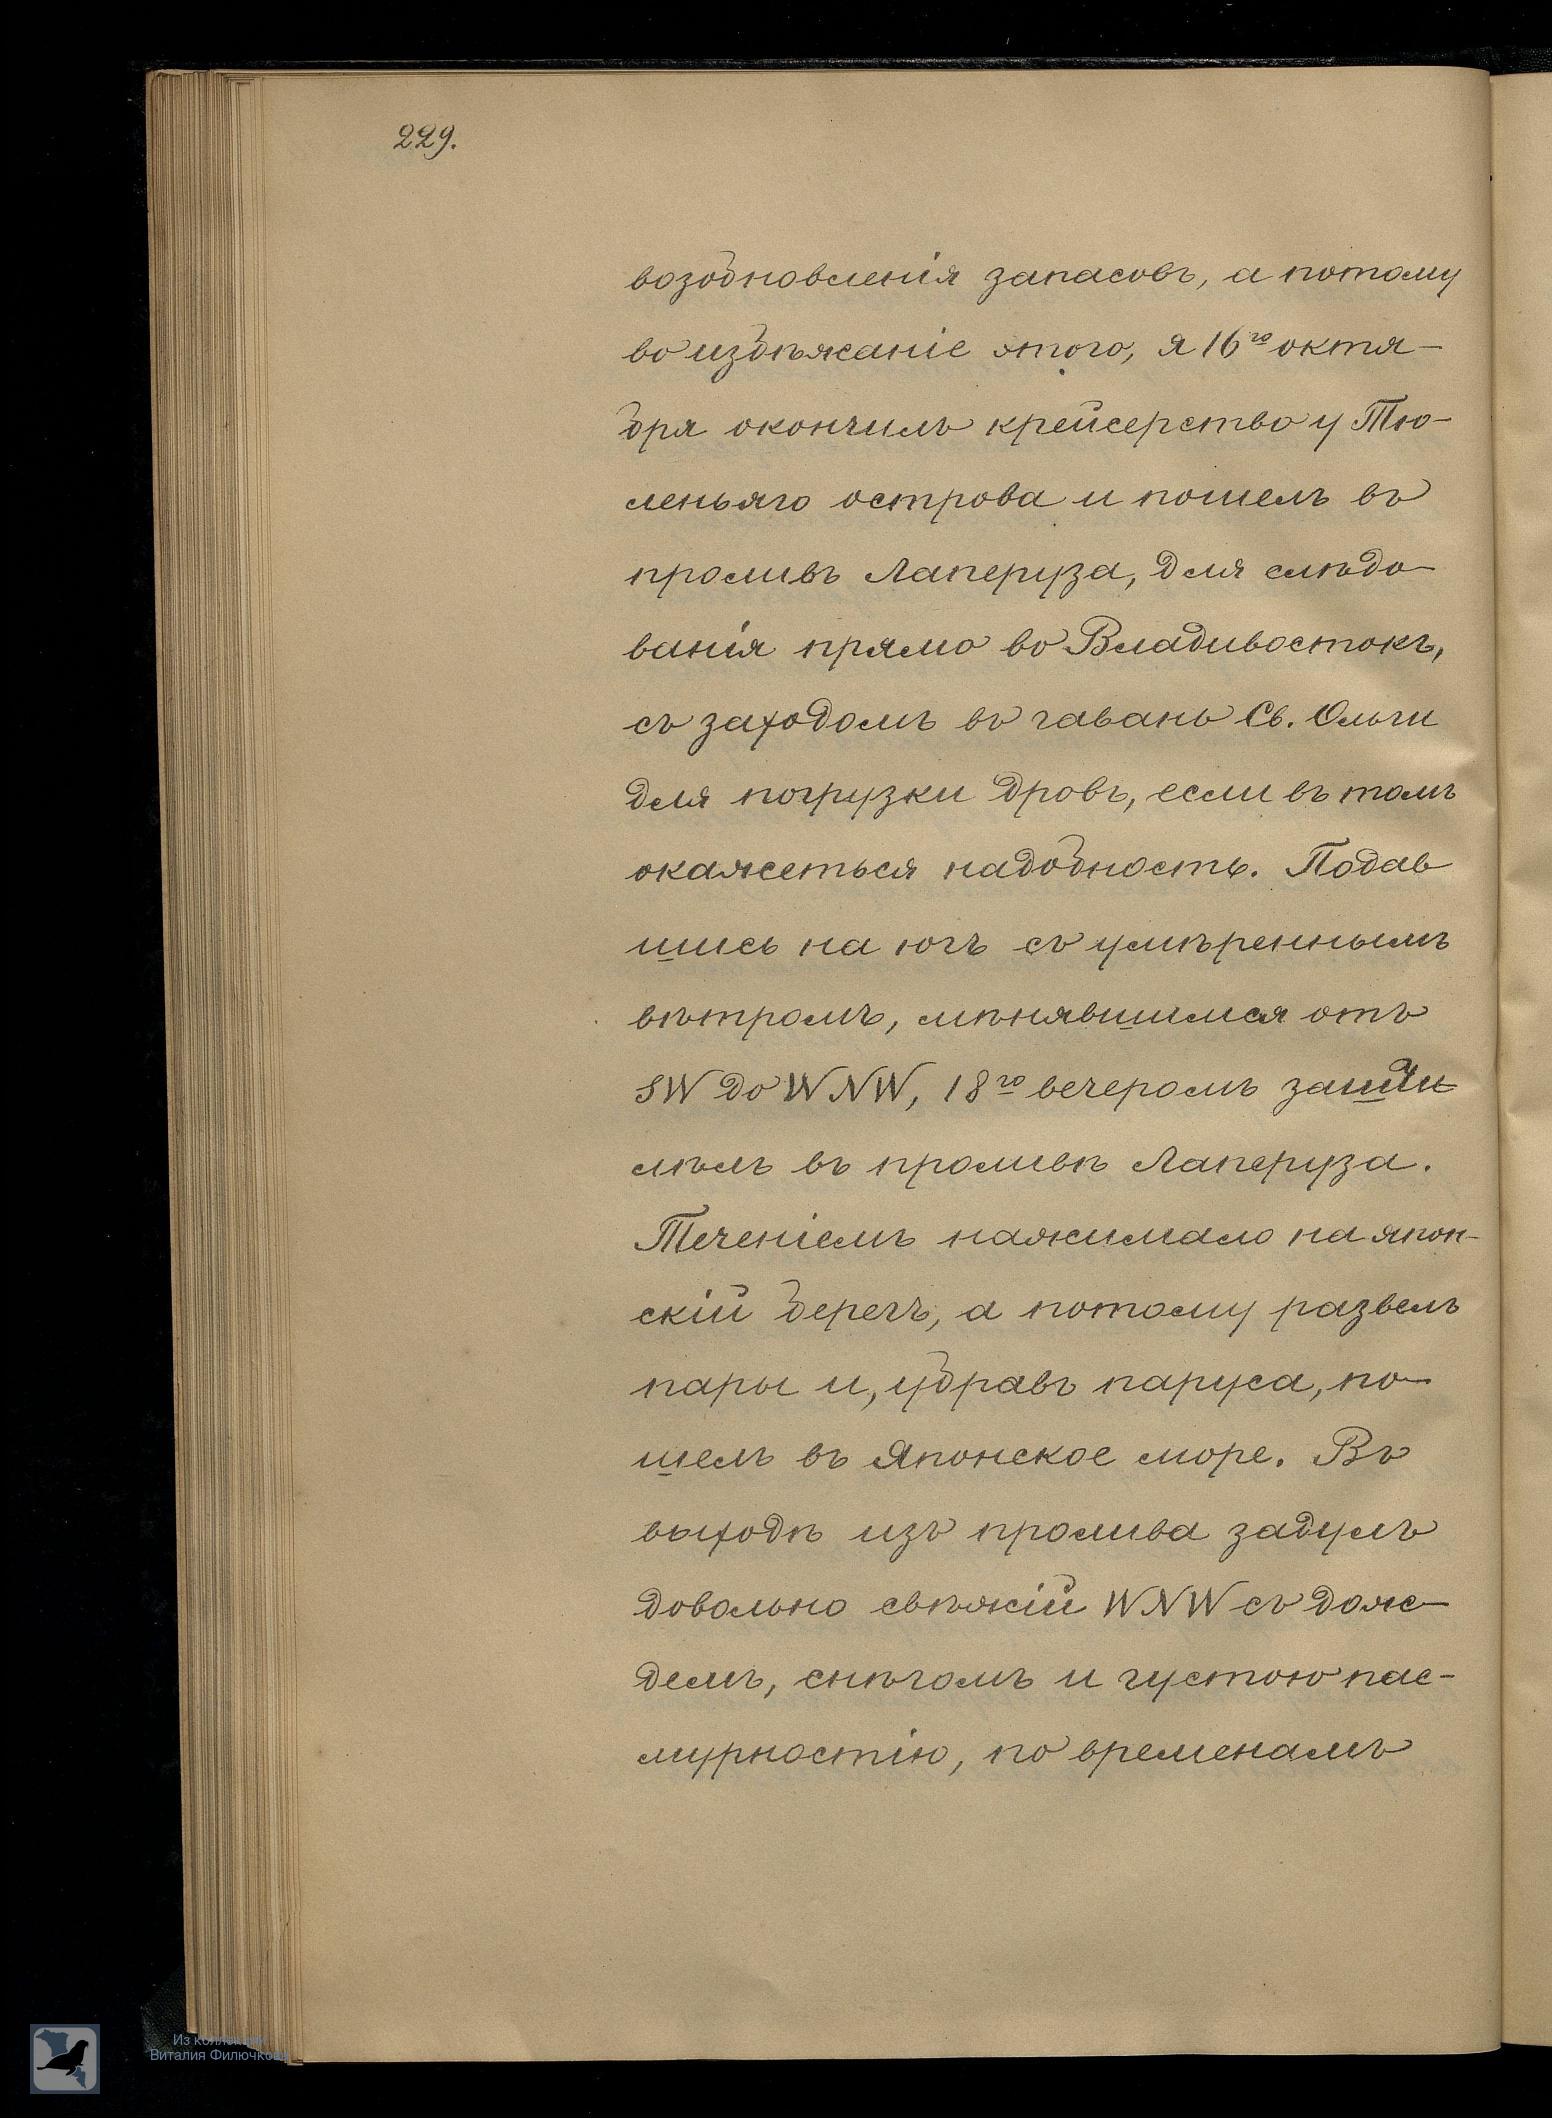 229.
возобновленія запасовъ, а потому
во избѣжаніе этого, я 16го октя-
бря окончилъ крейсерство у Тю-
леньяго острова и пошелъ въ
проливъ Лаперуза, для слѣдо-
ванія прямо во Владивостокъ,
съ заходомъ въ гавань Св. Ольги
для погрузки дровъ, если въ томъ
окажеться надобность. Подав
шись на югъ съ умѣреннымъ
вѣтромъ, мѣнявшимся отъ
SW до WNW, 18го вечеромъ зашти
лѣлъ въ проливѣ Лаперуза.
Теченіемъ нажимало на япон-
скій берегъ, а потому развелъ
пары и, убравъ паруса, по-
шелъ въ Японское море. Въ
выходѣ изъ пролива задулъ
довольно свѣжій WNW съ дож-
демъ, снѣгомъ и густою пас-
мурностію, по временамъ
Из коллекции
Виталия Филючкова